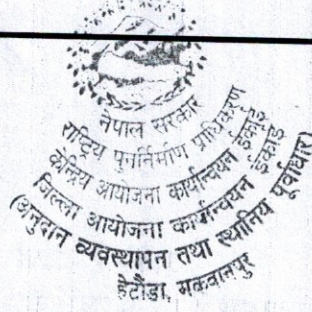 नेपाल सरकार
राष्ट्रिय पुनर्निर्माण प्राधिकरण
केन्द्रिय आयोजना कार्यान्वयन ईकाई
जिल्ला आयोजना कार्यान्वयन ईकाई
(अनुदान व्यवस्थापन तथा स्थानिय पूर्वाधार)
हेटौंडा, मकवानपुर